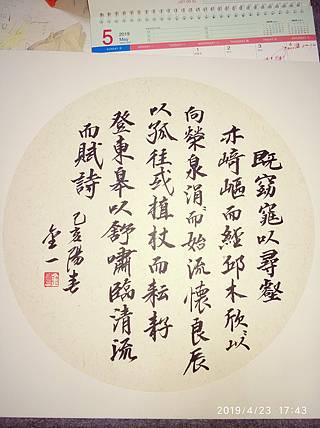 5 2019
May
既窈窕以尋壑
亦崎嶇而經邱木欣〻以
向榮泉涓〻而始流懷良辰
以孤往或植杖而耘耔
登東皋以舒嘯臨清流
而賦詩
己亥陽春
金一
2019/4/23 17:43